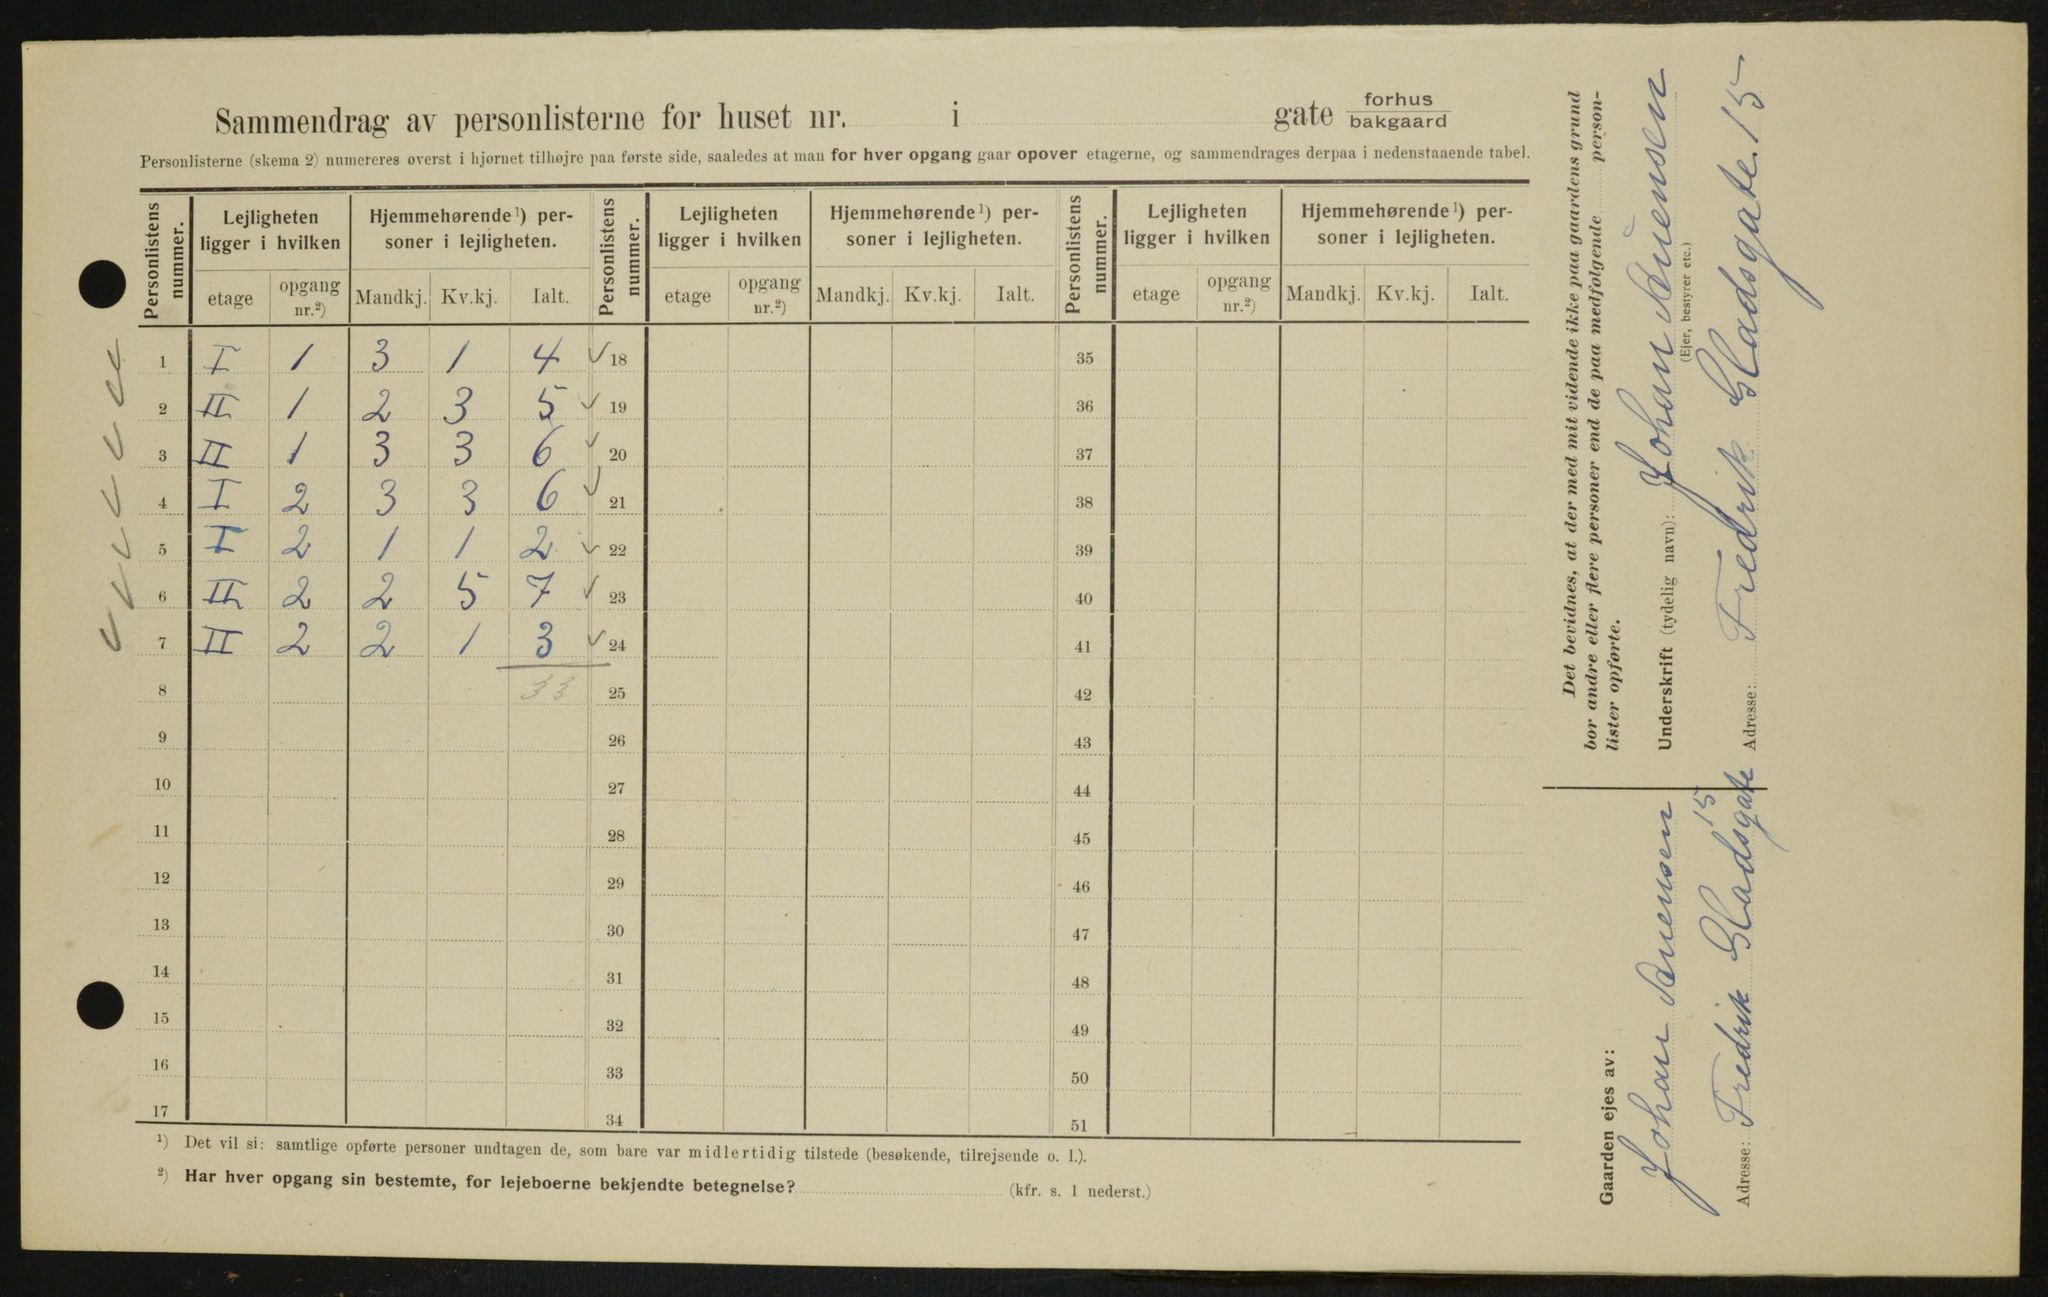 Sammendrag av personlisterne for huset nr. i gate forhus bakgaard
Personlisterne (skema 2) numereres øverst i hjørnet tilhøjre paa første side, saaledes at man for hver opgang gaar opover etagerne, og sammendrages derpaa i nedenstaaende tabel.
Personlistens nummer. Lejligheten ligger i hvilken Hjemmehørende ¹) personer i lejligheten. Personlistens nummer. Lejligheten ligger i hvilken Hjemmehørende ¹) personer i lejligheten. Personlistens nummer. Lejligheten ligger i hvilken Hjemmehørende ¹) personer i lejligheten.
etage opgang nr.²) Mandkj. Kv.kj. Ialt. etage opgang nr.²) Mandkj. Kv.kj. Ialt. etage opgang nr.²) Mandkj. Kv.kj. Ialt.
1 I 1 3 1 4 ✓ 18 35
2 II 1 2 3 5 ✓ 19 36
3 II 1 3 3 6 ✓ 20 37
4 I 2 3 3 6 ✓ 21 38
5 I 2 1 1 2 ✓ 22 39
6 II 2 2 5 7 ✓ 23 40
7 II 2 2 1 3 ✓ 24 41
8 33 25 42
9 26 43
10 27 44
11 28 45
12 29 46
13 30 47
14 31 48
15 32 49
16 33 50
17 34 51
¹) Det vil si: samtlige opførte personer undtagen de, som bare var midlertidig tilstede (besøkende, tilrejsende o. l.).
²) Har hver opgang sin bestemte, for lejeboerne bekjendte betegnelse? (kfr. s. 1 nederst.)
Det bevidnes, at der med mit vidende ikke paa gaardens grund
bor andre eller flere personer end de paa medfølgende person-
lister opførte.
Underskrift (tydelig navn): Johan
(Ejer, bestyrer etc.)
Adresse: Fredrik Gladsgate. 15
Gaarden ejes av:
Johan
Adresse: Fredrik Gladsgate 15